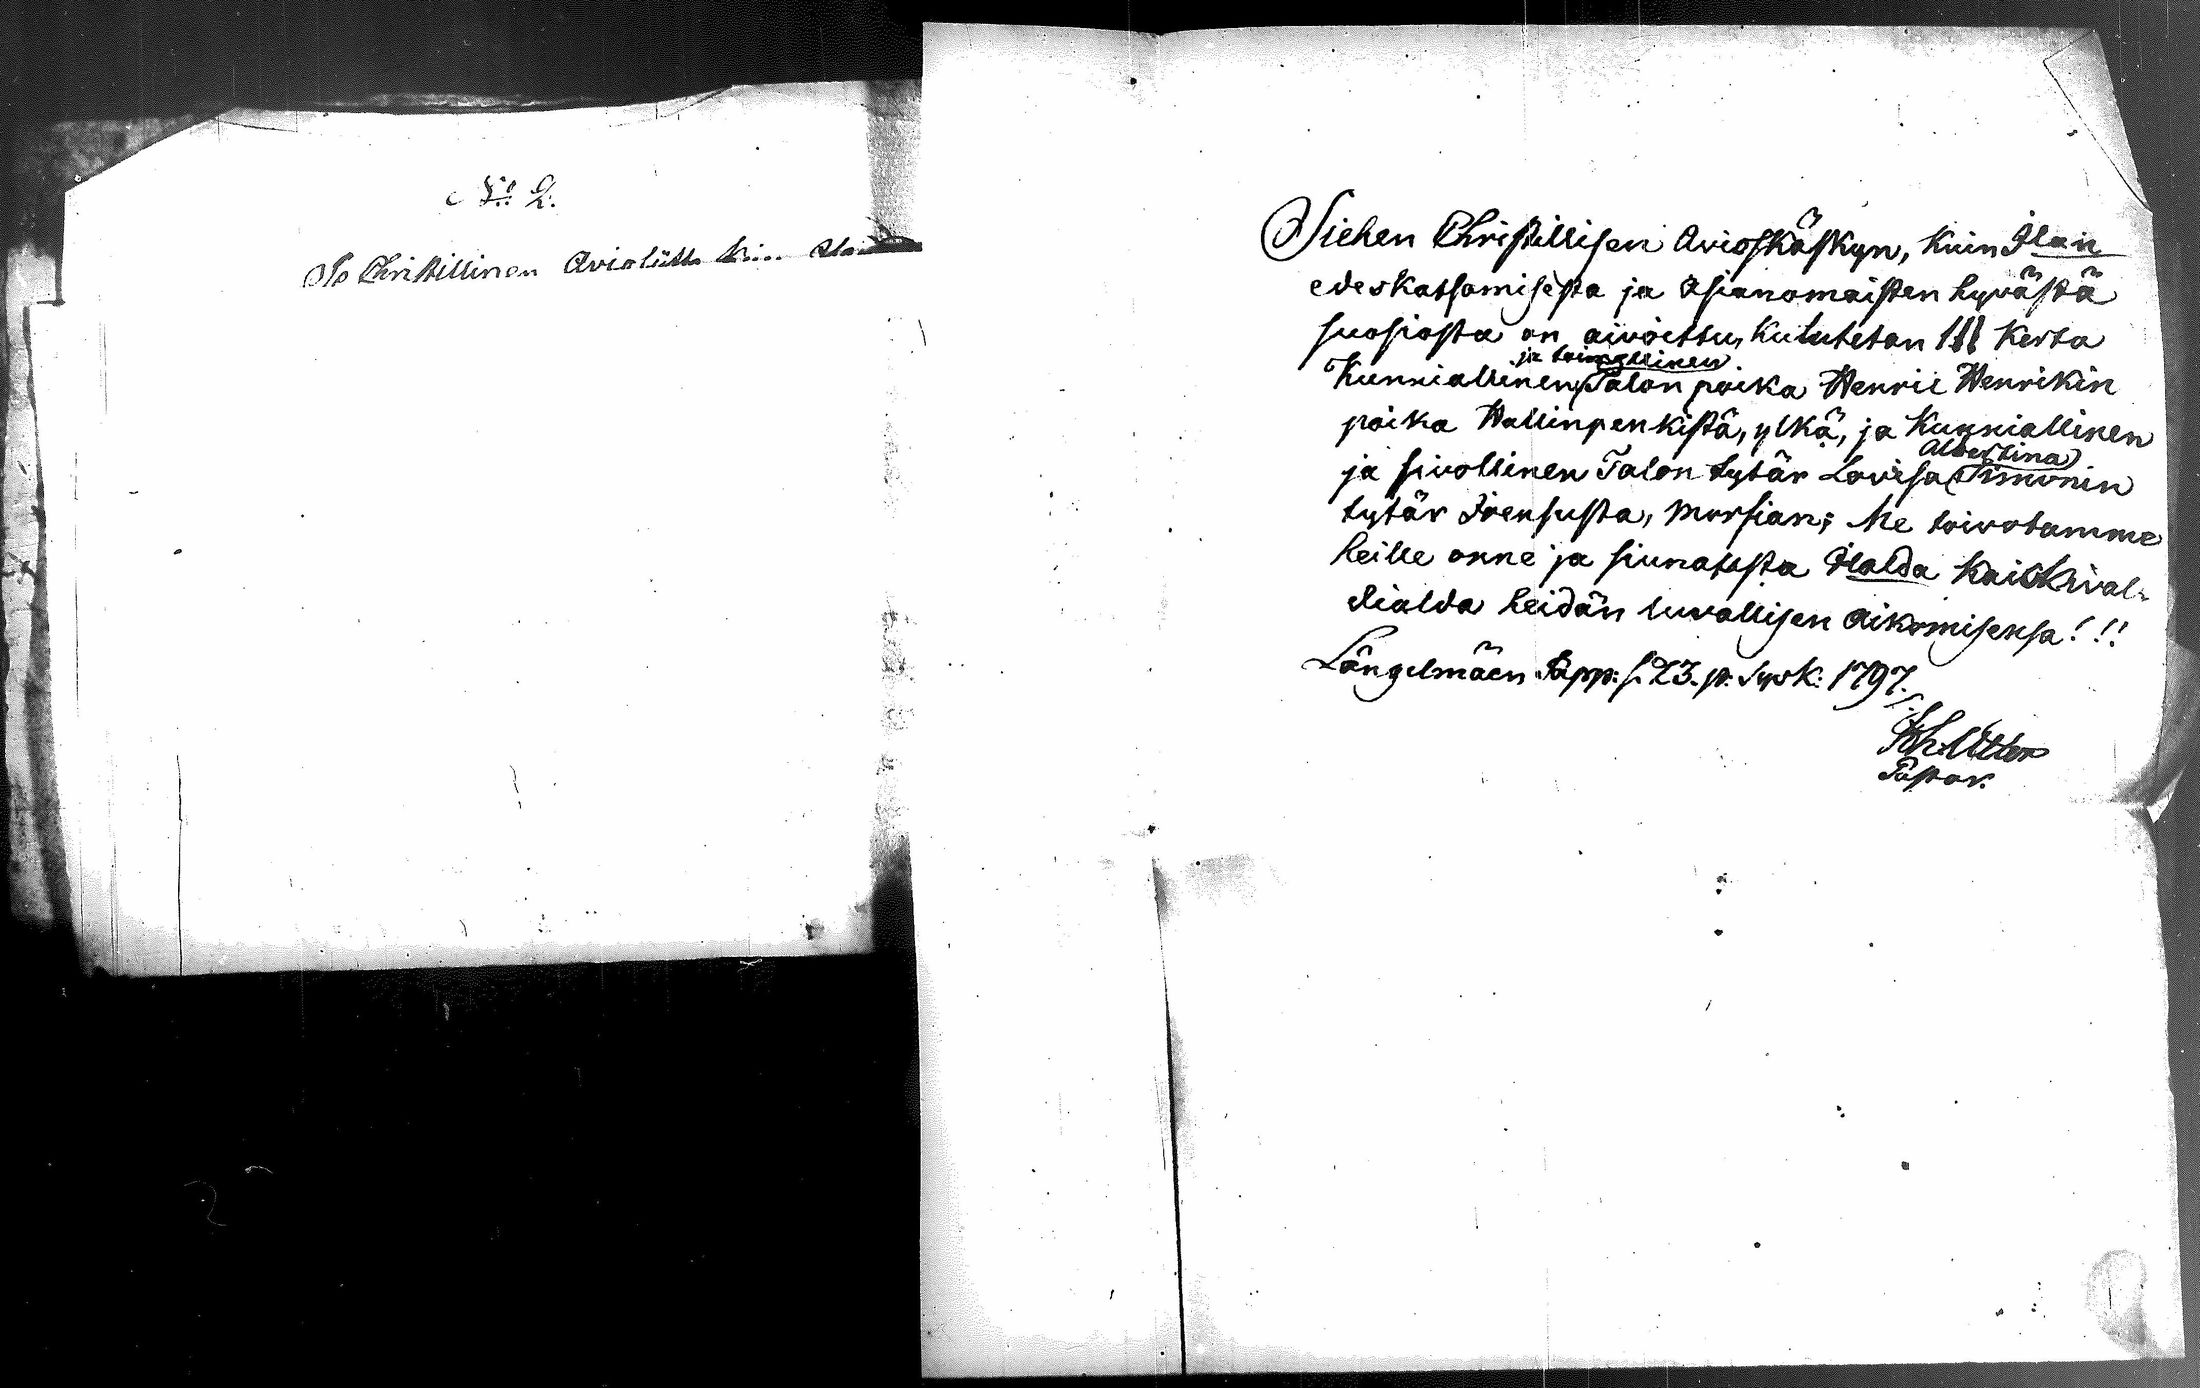 No 2.
Se Christillinen Avioliitto
Siehen Christillisen Avioskäskyn, kuin Ilan
edeskatsomisesta ja Asianomaisten hyvästä
suosiosta on aivoittu, kulutetan III kerta
Kunniallinen ja toimellinen Talon poika Henric Henrikin
poika Hallinpenkistä, ylkä, ja Kunniallinen
ja sivollinen Talon tytär Lovisa Albertina Simonin
tytär Joensusta, morsian; Me toivotamme
heille onne ja siunausta Ilalda kaickival-
dialda heidän luvallisen aikomisensa!!!
Längelmäen Papp: s. 23. p. Syysk: 1797.
Pastor.